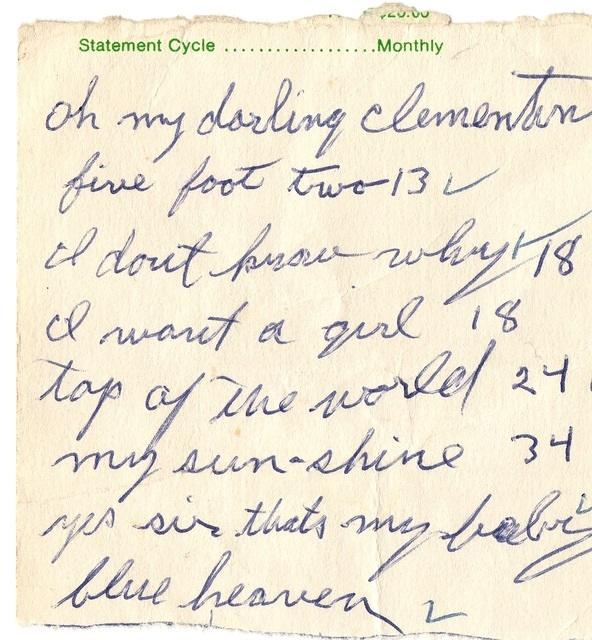 $20.00
Statement Cycle ..................Monthly
oh my darling clementin
five foot two-13 ✓
I dont know why ✓ 18
I want a girl 18
top of the world 24
my sun-shine 34
yes sir thats my baby ✓
blue heaven ✓